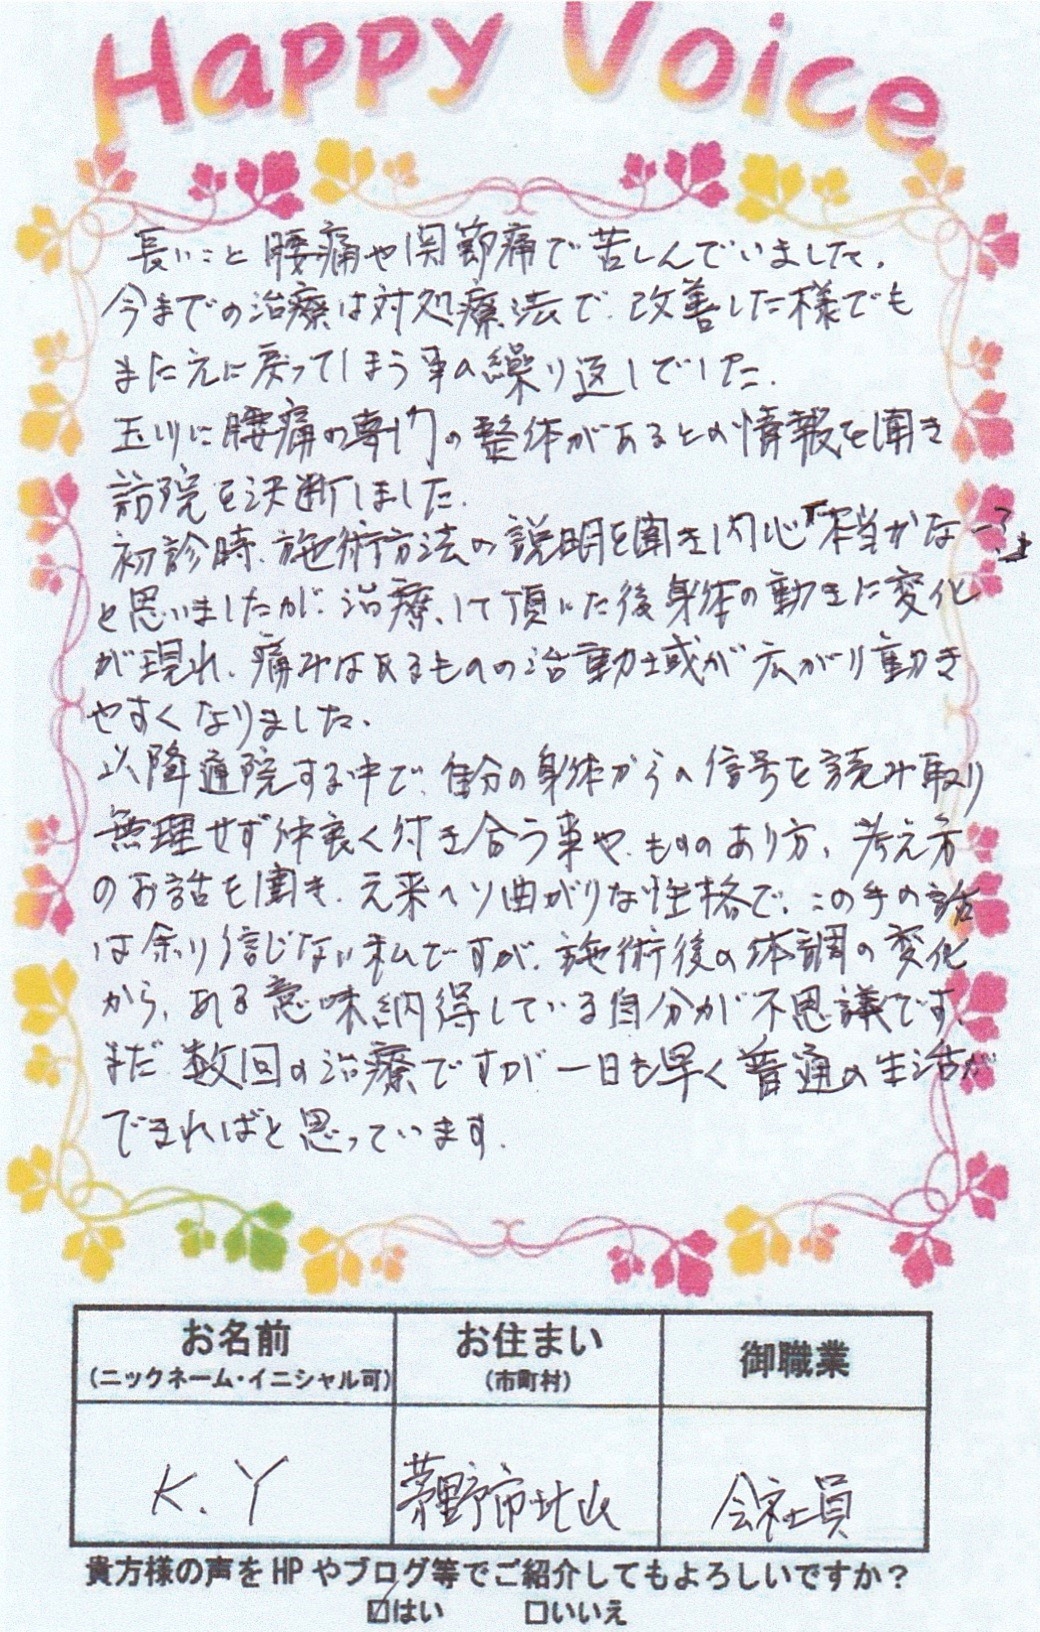 Happy Voice
長いこと腰痛や関節痛で苦しんでいました。
今までの治療は対処療法で、改善した様でも
また元に戻ってしまう事の繰り返しでした。
玉川に腰痛の専門の整体があるとの情報を聞き
訪院を決断しました。
初診時、施術方法の説明を聞き内心"本当かなー?"
と思いましたが、治療して頂いた後身体の動きに変化
が現れ、痛みはあるものの治動域が広がり動き
やすくなりました。
以降通院する中で、自分の身体からの信号を読み取り
無理せず仲良く付き合う事や、もののあり方、考え方
のお話を聞き、元来ヘソ曲がりな性格で、この手の話
は余り信じない私ですが、施術後の体調の変化
から、ある意味納得している自分が不思議です。
まだ数回の治療ですが一日も早く普通の生活が
できればと思っています。
お名前 お住まい 御職業
(ニックネーム・イニシャル可) (市町村)
K.Y 茅野市北山 会社員
貴方様の声をHPやブログ等でご紹介してもよろしいですか?
☑はい □いいえ